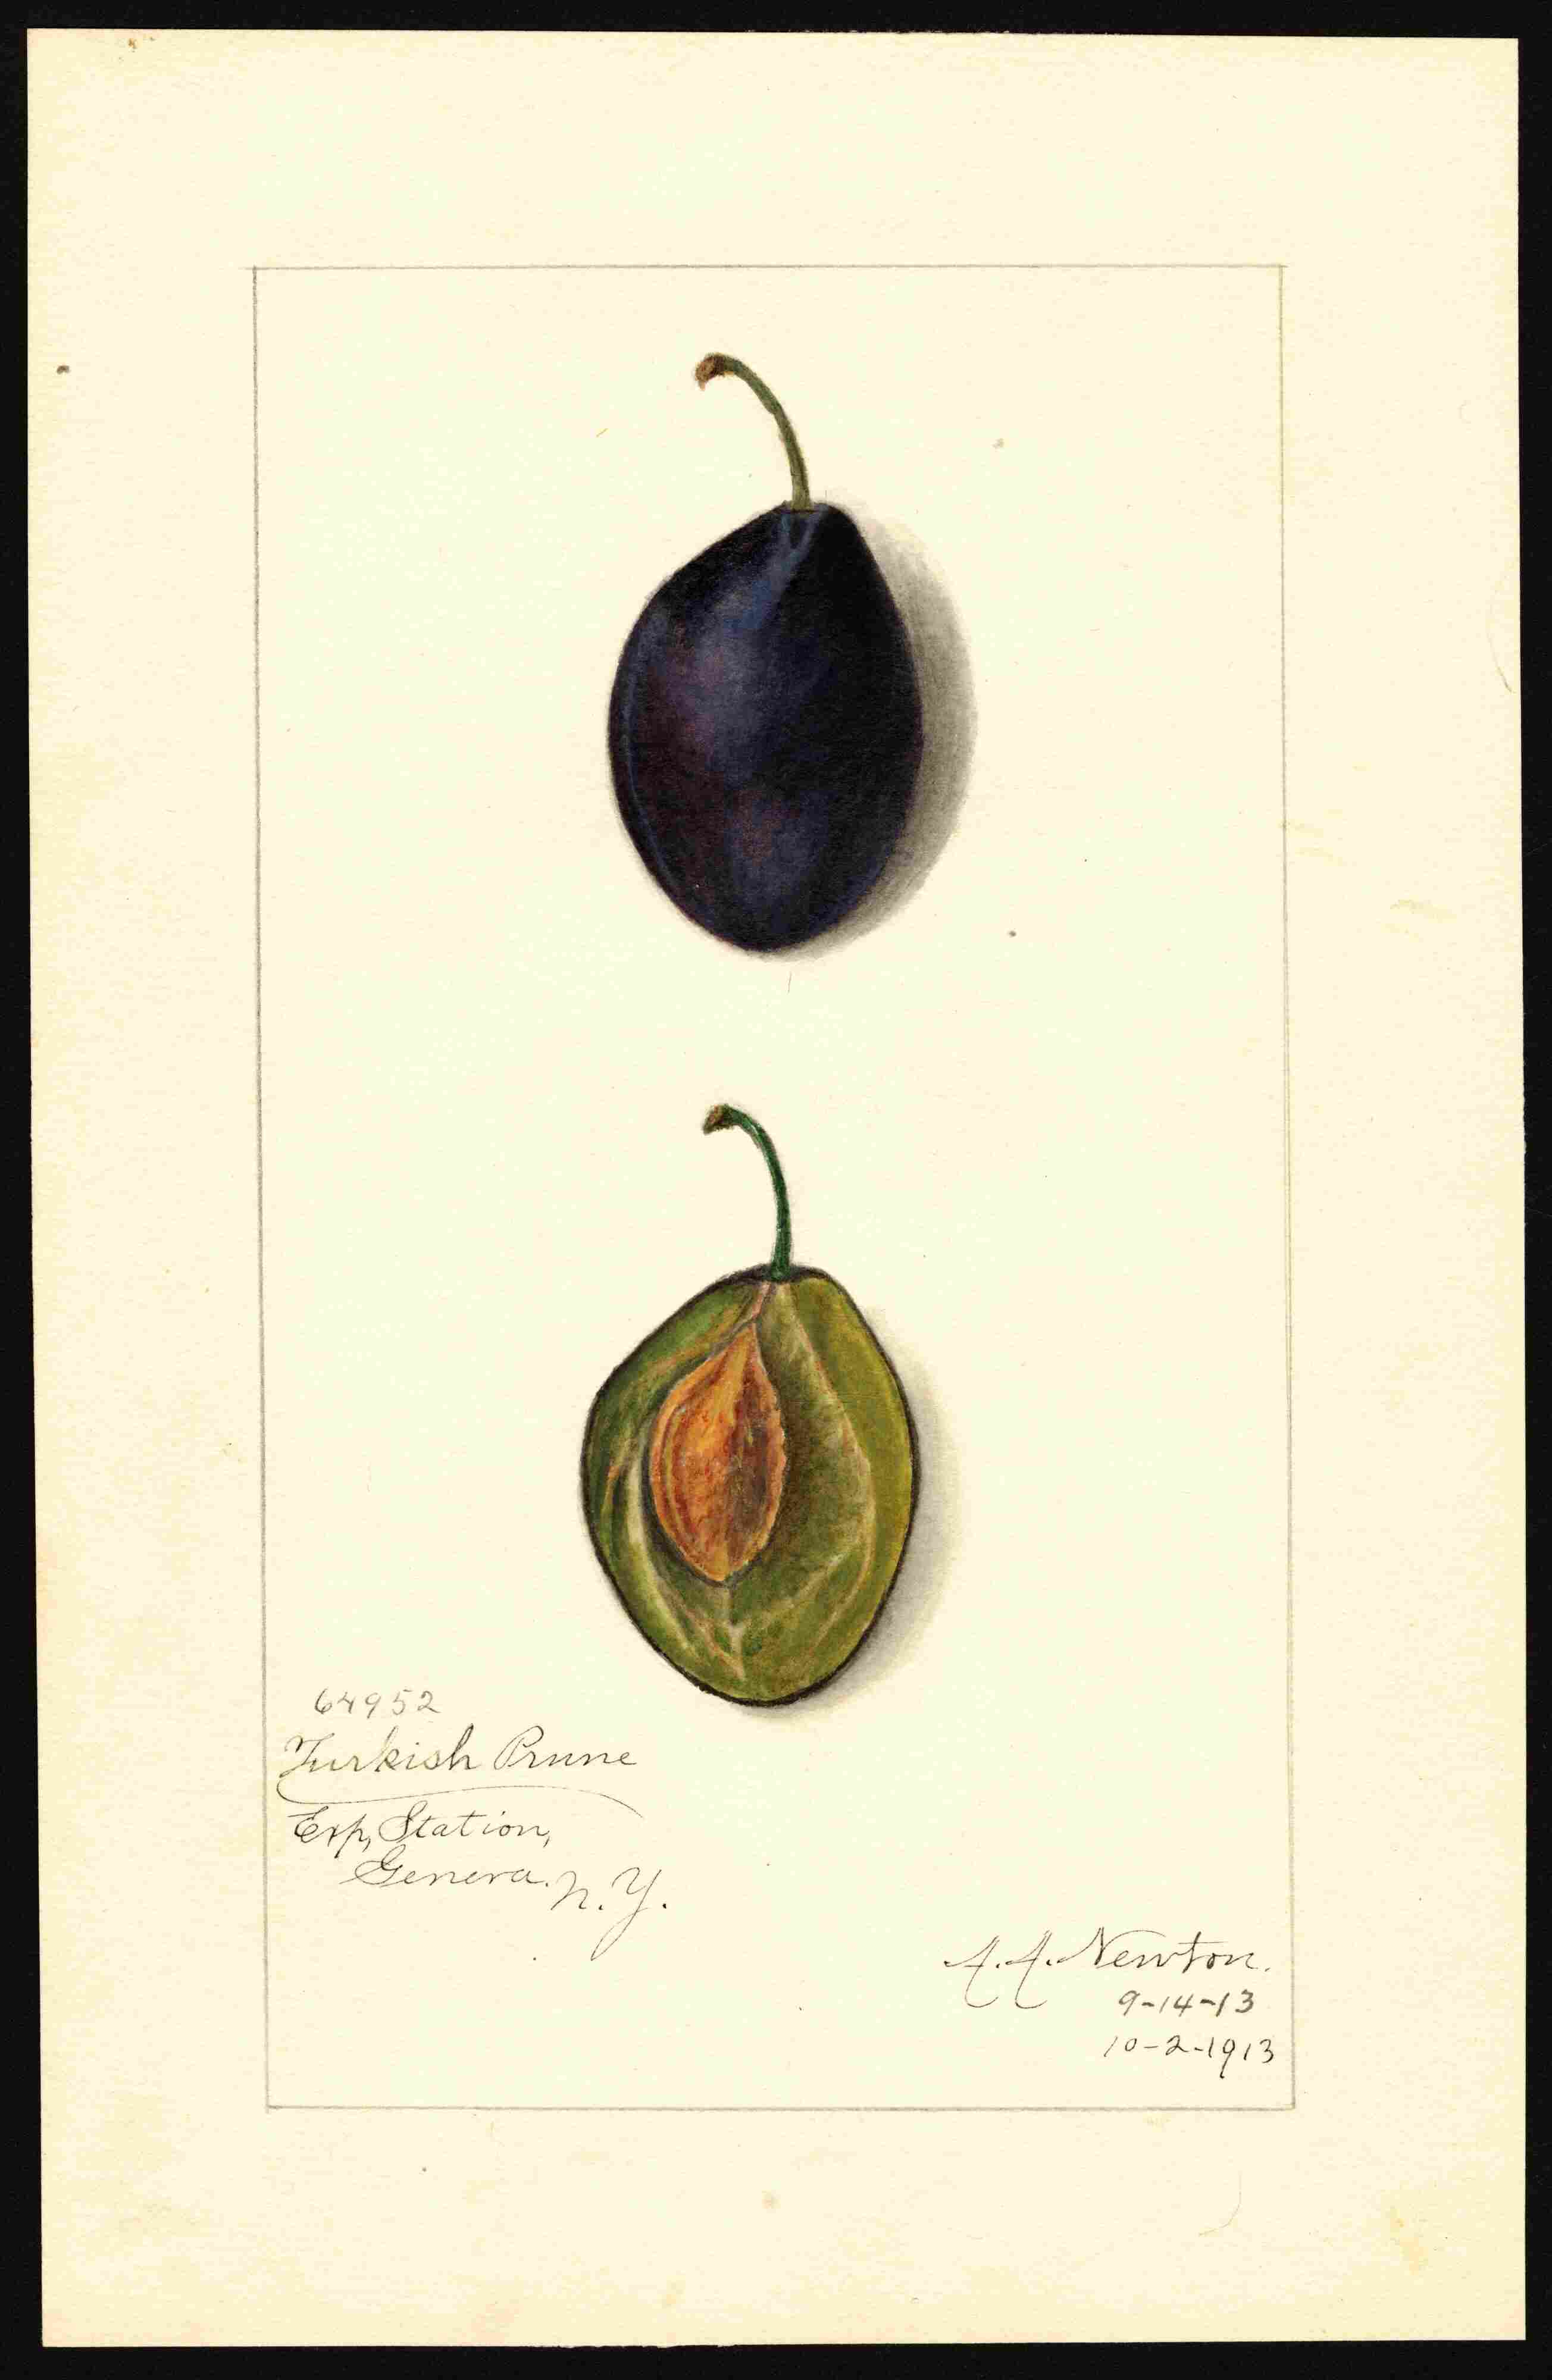 64952
Turkish Prune
Exp, Station,
Geneva. N.Y.
A.A. Newton.
9-14-13
10-2-1913